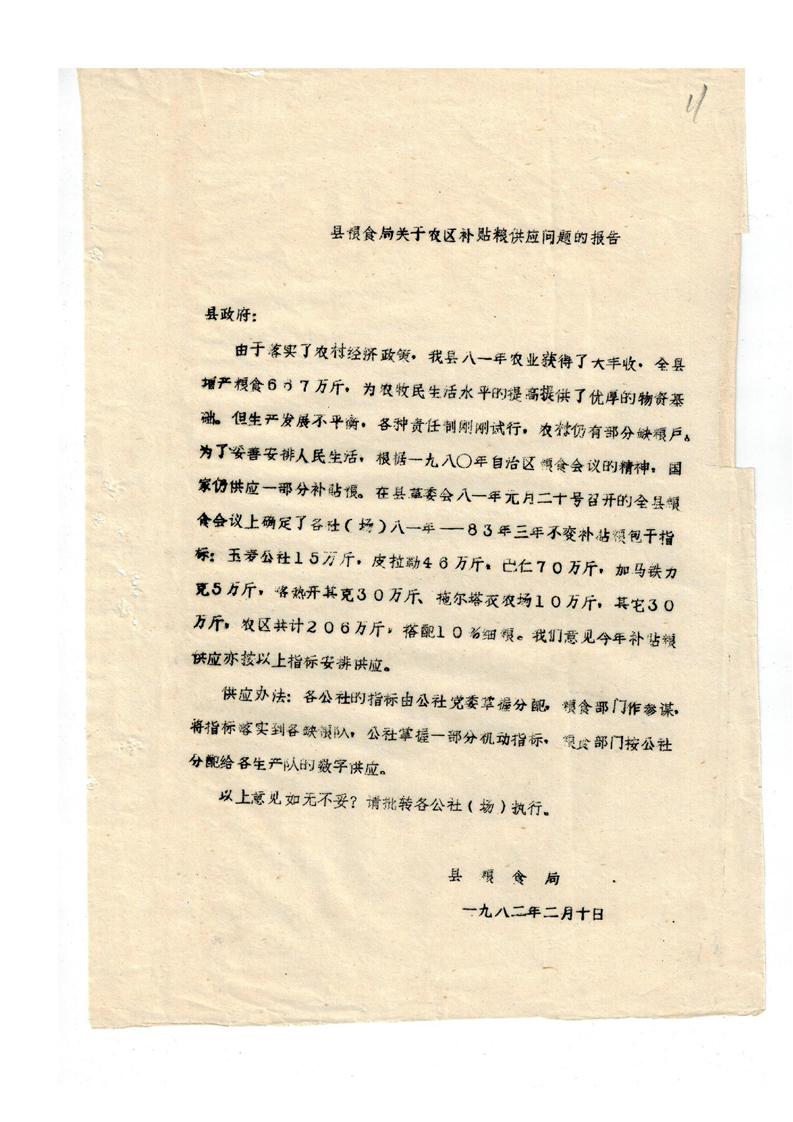 11
县粮食局关于农区补贴粮供应问题的报告
县政府：
由于落实了农村经济政策，我县八一年农业获得了大丰收，全县
增产粮食667万斤，为农牧民生活水平的提高提供了优厚的物资基
础。但生产发展不平衡，各种责任制刚刚试行，农村仍有部分缺粮户。
为了妥善安排人民生活，根据一九八〇年自治区粮食会议的精神，国
家仍供应一部分补贴粮。在县革委会八一年元月二十号召开的全县粮
食会议上确定了各社（场）八一年——83年三年不变补贴粮包干指
标：玉孝公社15万斤，皮拉勒46万斤，巴仁70万斤，加马铁力
克5万斤，喀热开其克30万斤、拖尔塔衣农场10万斤，其它30
万斤，农区共计206万斤，搭配10%细粮。我们意见今年补贴粮
供应亦按以上指标安排供应。
供应办法：各公社的指标由公社党委掌握分配，粮食部门作参谋，
将指标落实到各缺粮队，公社掌握一部分机动指标，粮食部门按公社
分配给各生产队的数字供应。
以上意见如无不妥？请批转各公社（场）执行。
县粮食局
一九八二年二月十日